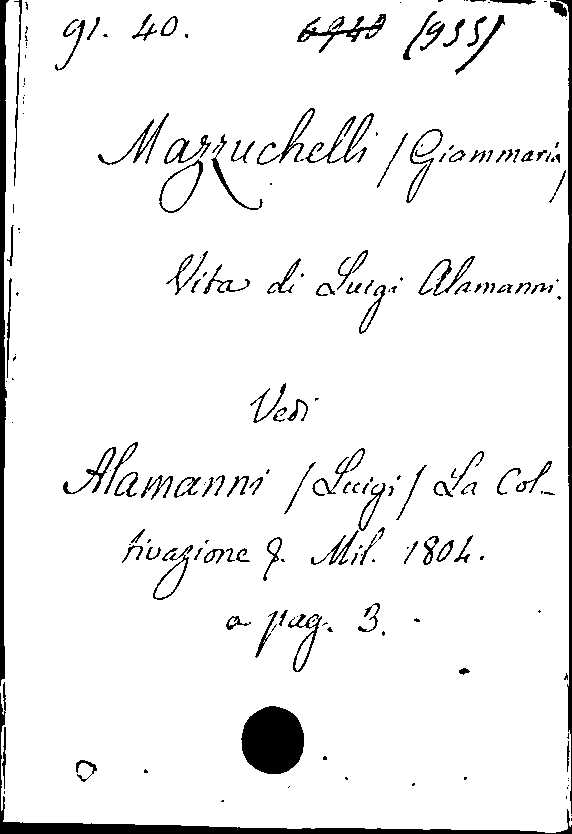 gr. 40. 6940 (955)
Mazzuchelli (Giammaria)
Vita di Luigi Alamanni.
Vedi
Alamanni (Luigi) La Col-
tivazione &. Mil. 1804.
a pag. 3.